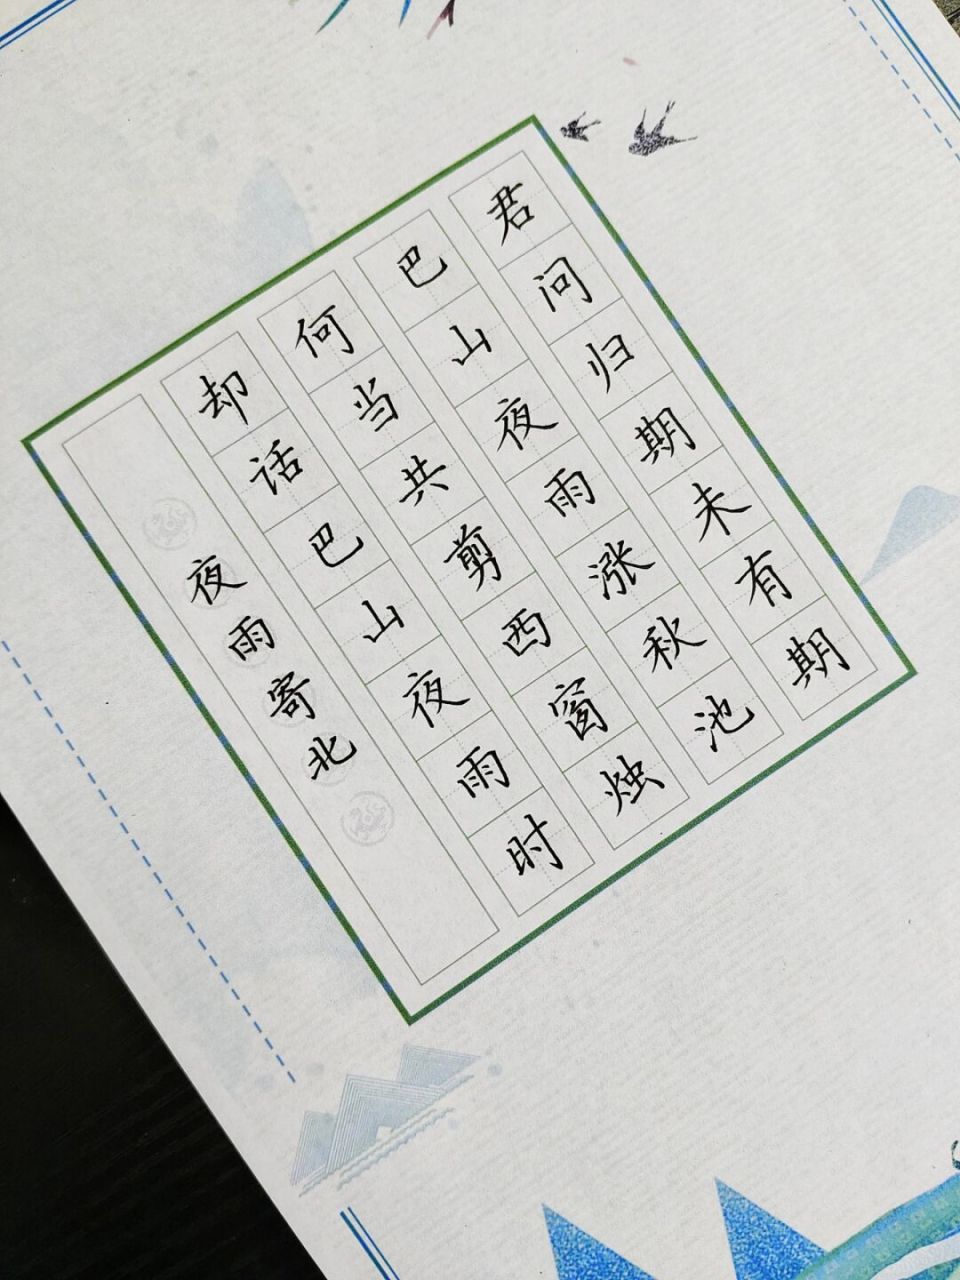 君问归期未有期
巴山夜雨涨秋池
何当共剪西窗烛
却话巴山夜雨时
夜雨寄北